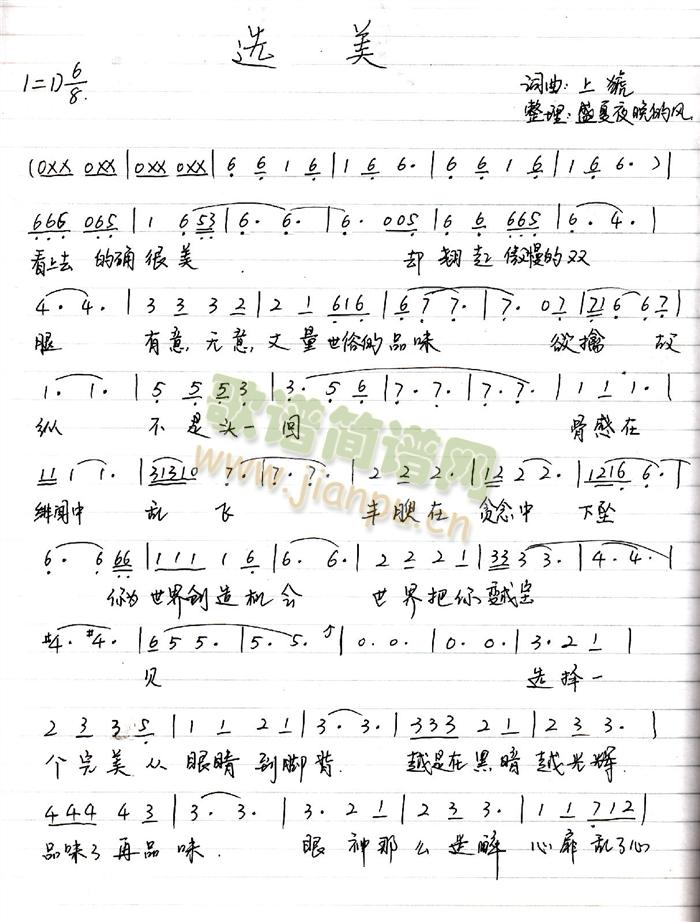 选 美
1=D 6/8.
词曲: 上 號
整理: 盛夏夜晚的风
(0XX 0XX|0XX 0XX|6 6 1 6|1 6 6·|6 6 1 6|1 6 6·)|
666 065|1 6 53|6· 6·|6· 005|6 6 665|6· 4·|
看上去 的确很美 却翘起傲慢的双
4· 4·|3 3 3 2|2 1 616|6 7 7·|7· 07|716 67|
腿 有意, 无意, 丈量世俗的品味 欲擒 故
1· 1·|5 5 5 3|3· 5 6|7· 7·|7· 7·|1 1 1·|
纵 不是头一回 骨感在
11 1 1·|31310 7·|7· 7·|2 2 2·|12 2 2·|1216 6·|
绯闻中 乱 飞 丰腴在 贪念中 下坠
6· 6 66|111 1 6|6· 6·|2 2 2 1|333 3 3·|4· 4·|
你为世界创造机会 世界把你变成宝
#4· #4·|6 5 5·|5· 5·|0· 0·|0· 0·|3· 2 1|
贝 选择一
2 3 3 5|1 1 2 1|3· 3·|333 2 1|2 3 3·|
个完美从 眼睛到脚背. 越是在黑暗越光辉.
444 4 3|3· 3·|3· 2 1|2 3 3·|1 1 712|
品味了再品味. 眼神那么迷醉 心扉乱了心
歌谱简谱网
www.jianpu.cn